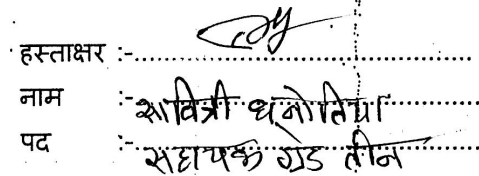 हस्ताक्षर :-
नाम :- सावित्री धनोतिया
पद :- सहायक ग्रेड तीन